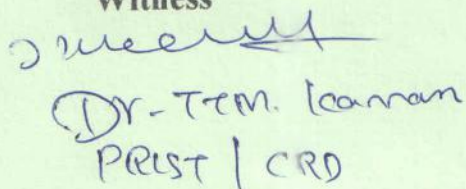 Witness
Dr. TTM. Kannan
PRIST | CRD